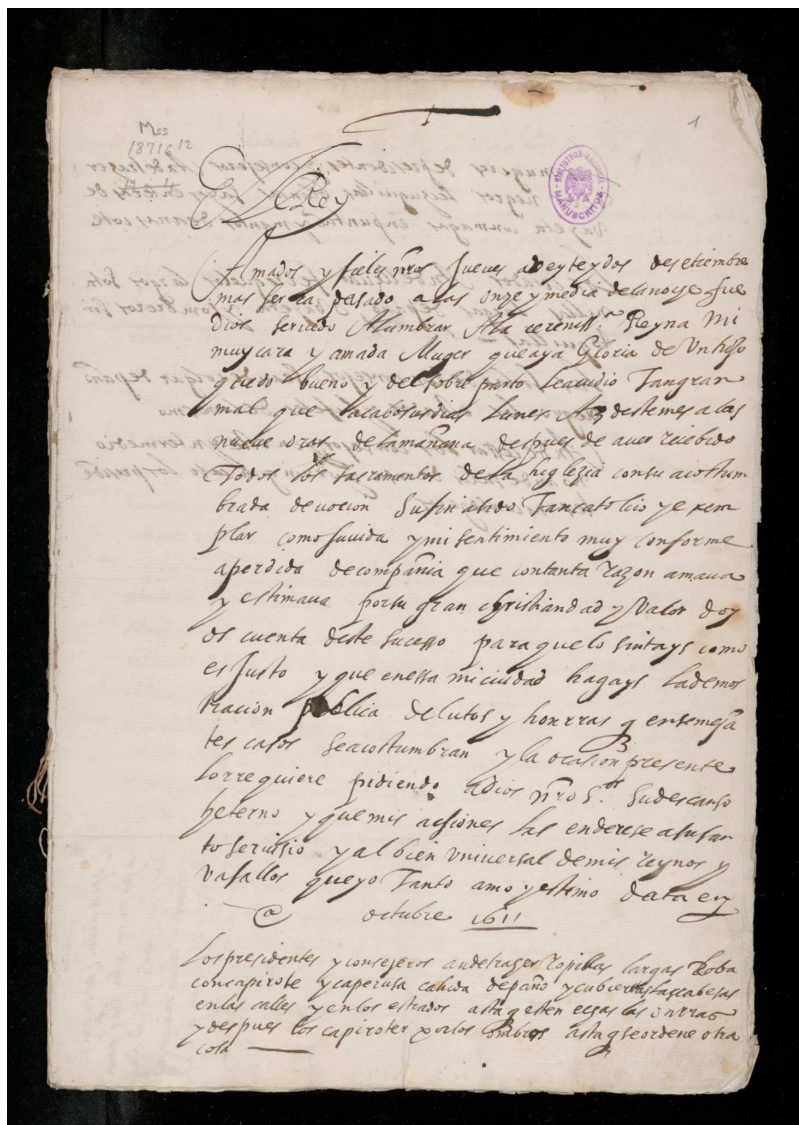 Mss
18716 12
1
BIBLIOTECA NACIONAL
MANUSCRITOS
El Rey
Amados y fieles nrōs Jueves a veyteydos de setiembre
mas serca pasado a las onze y media de la noje fue
dios servido Alumbrar Ala sereniss.ª Reyna mi
muy cara y amada Muger que aya Gloria de Un hijo
quedo bueno y del sobre parto le acudio Tan gran
mal que acabo sus dias Lunes A 3 deste mes a las
nueve oras de la mañana despues de aver recebido
Todos los sacramentos de la higlezia con su acostum
brada devocion Su fin a sido Tan catolico y exem
plar como su vida y mi sentimiento muy conforme
a perdida de compañia que con tanta razon amava
y estimava por su gran christiandad y valor doy
os cuenta deste sucesso para que lo sintays como
es justo y que en essa mi ciudad hagays la demos
tracion publica de lutos y honrras q en semejā
tes casos se acostumbran y la ocasion presente
lo rrequiere pidiendo a dios nrō S.or su descanso
heterno y que mis acsiones las enderese a su san
to servisio y al bien universal de mis reynos y
vasallos que yo Tanto amo y estimo data en
octubre 1611
Los presidentes y consejeros an de trager Ropillas largas Loba
con capirote y caperusa cahida de paño y cubiertas las cabesas
en las calles y en los estrados asta q esten echas las onrras
y despues los capirotes por los ombros asta q se ordene otra
cosa